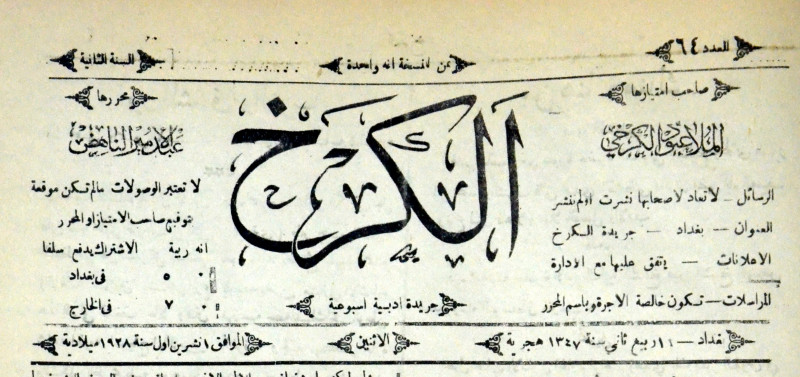 العدد ٦٤
ثمن النسخة انه واحدة
السنة الثانية
صاحب امتيازها
الملا عبود الكرخي
الرسائل — لا تعاد لاصحابها نشرت اولم تنشر
العنوان — بغداد — جريدة الكرخ
الاعلانات — يتفق عليها مع الادارة
المراسلات — تكون خالصة الاجرة وباسم المحرر
الكرخ
جريدة ادبية اسبوعية
محررها
عبدالامير الناهض
لا تعتبر الوصولات مالم تكن موقعة
بتوقيع صاحب الامتياز او المحرر
انه ربية الاشتراك يدفع سلفا
٠ ٥ في بغداد
٠ ٧ في الخارج
بغداد — ١٠ ربيع ثاني سنة ١٣٤٧ هجرية
الاثنين
الموافق ١ تشرين اول سنة ١٩٢٨ ميلادية